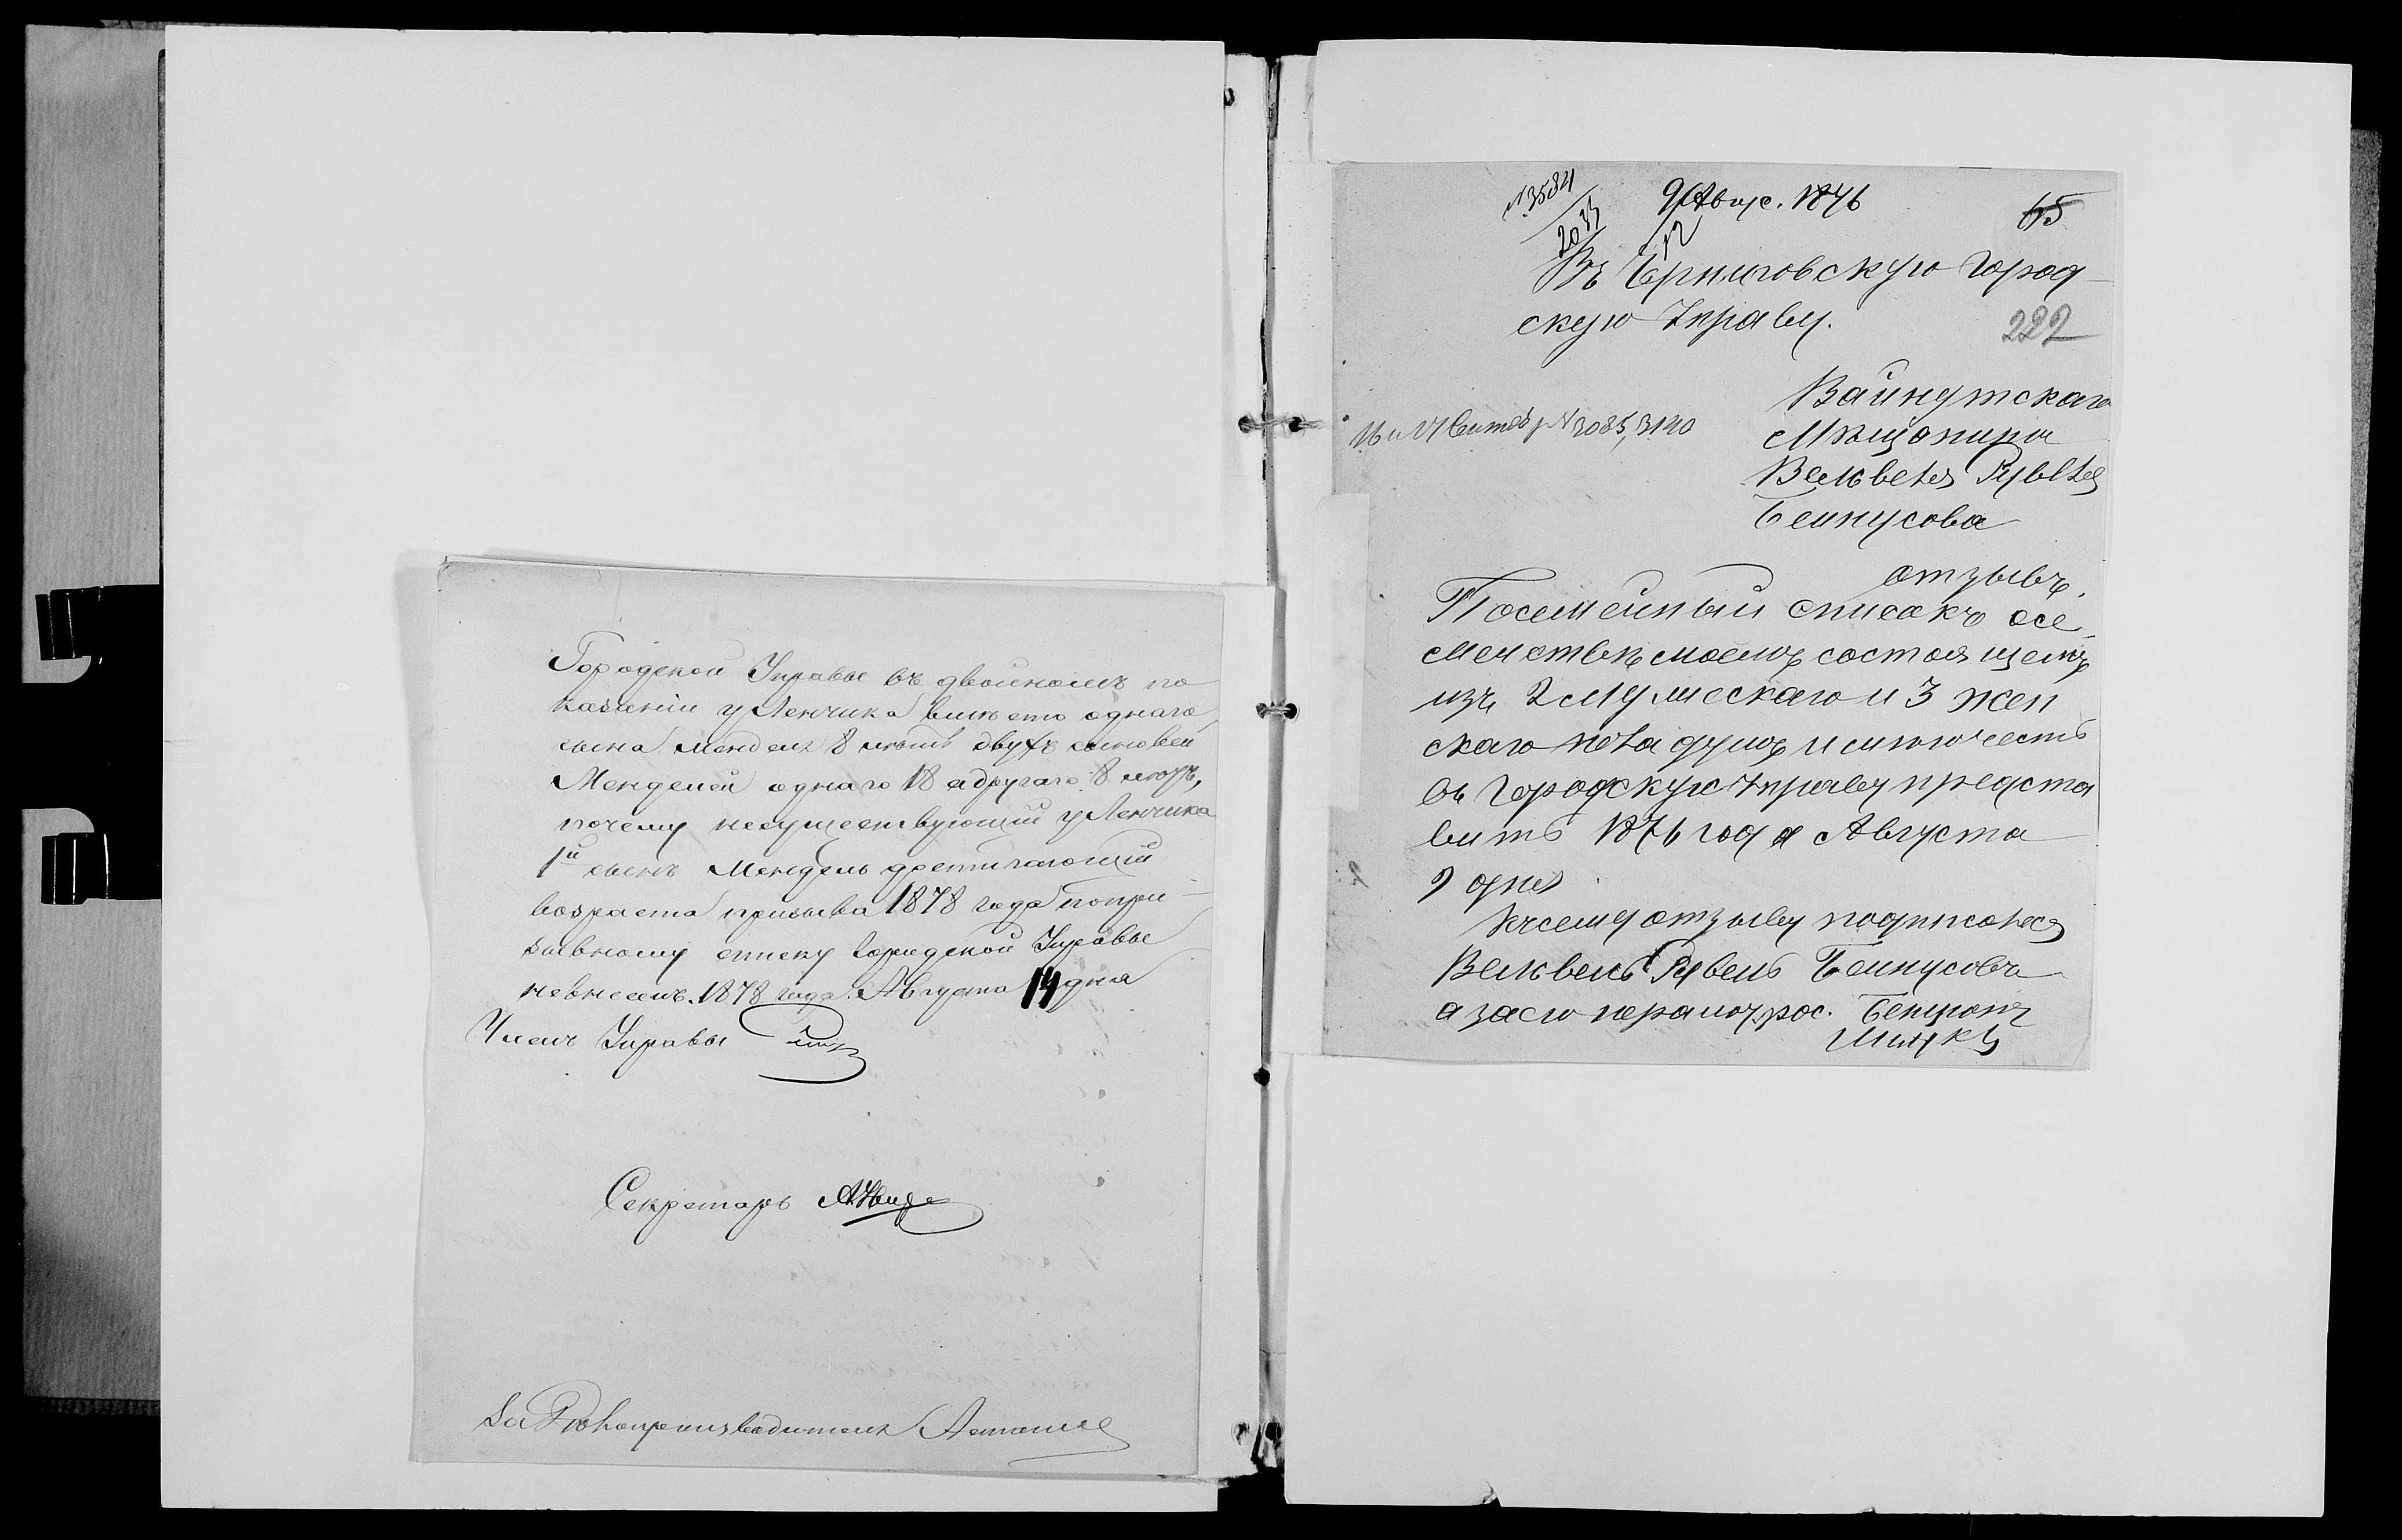 Городской Управе въ двойномъ по
казаніи у Ленчика вмѣсто однаго
сына Менделя 8 лѣтъ двухъ сыновей
Менделей однаго 18 а другаго 8 лѣтъ,
почему несуществующій у Ленчика
1й сынъ Мендель достигающій
возраста призыва 1878 года попри-
зывному списку Городской Управы
невнесенъ. 1878 года Августа 14 дня
Членъ Управы
Секретарь
За Дѣлопроизводителя
№ 3584
9 Авгус. 1876
65
12
Въ Черниговскую Город
скую Управу.
222
Вайнутскаго
Мѣщанина
Вельвеля Рувеля
Бейнусова
16 и 17 Сентяб № 3085, 3120
отзывъ.
Посемейный списокъ осе
мействѣ моемъ состоящемъ
изъ 2 Мужескаго и 3 жен
скаго пола душъ исимъ честь
въ Городскую Управу предста
вить 1876 года Августа
9 дня
Ксему отзыву подписался
Вельвель Рувель Бейнусовъ
а засю неграмот. рос.